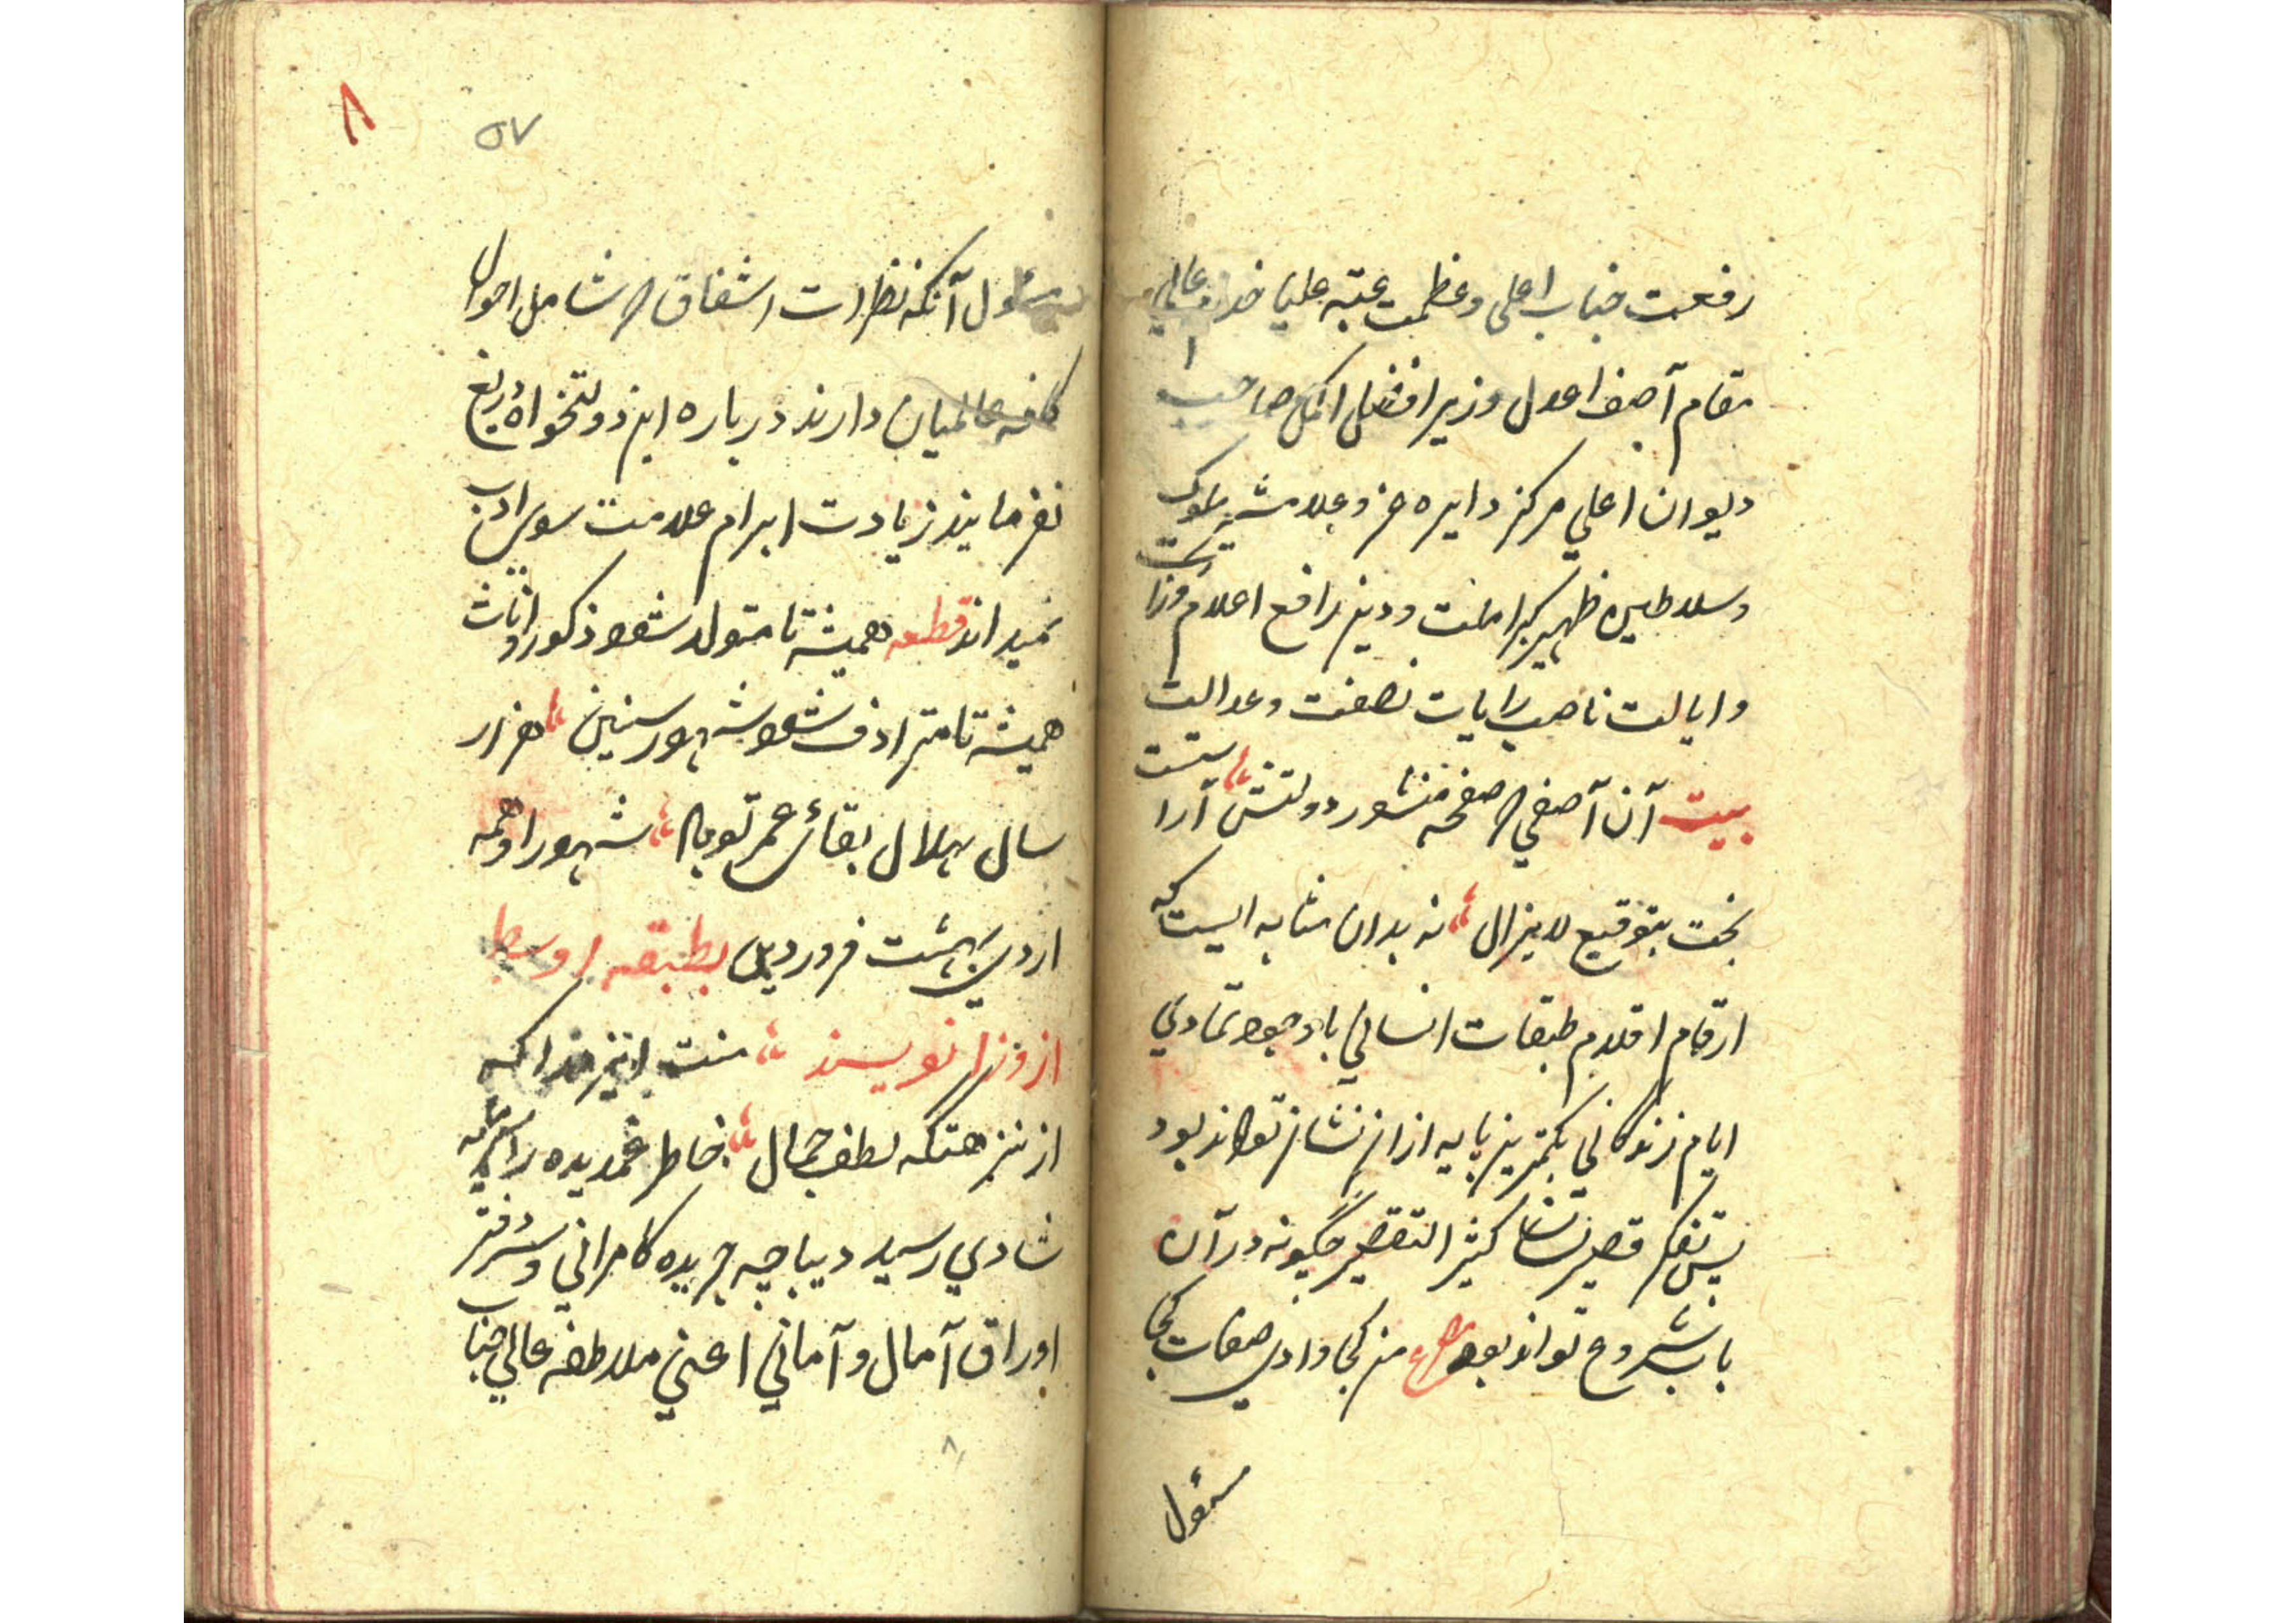 رفعت جناب اعلی و عظمت عتبه علیاء خداوند عالی
مقام آصف اعدل وزیر افضل اکمل صاحب
دیوان اعلی مرکز دایره عز و جلا مشیر ملوک
و سلاطین ظهیر کبراء ملت و دین رافع اعلام وزارت
و ایالت ناصب رایات نصفت و عدالت
بیت آن آصفی که صفحه منشور دولتش آراستست
بخت بتوقیع لایزال نه بدان مثابه ایست که
ارقام اقلام طبقات انسانی با وجود تمادی
ایام زندگانی بکمترین پایه از ان نشان تواند بود
پس تفکر قصیر کثیر التقصیر چگونه در آن
باب شروع تواند بود مصراع من کجا وادی صفات کجا
مسئول
۸
۵۷
مسئول آنکه نظرات اشفاق که شامل احوال
کافه عالمیان دارند درباره این دولتخواه دریغ
نفرمایند زیادت ابرام علامت سوء ادب
نمیداند قطعه همیشه تا متولد شود ذکور و اناث
همیشه تا مترادف شود شهور سنین هزار
سال بهلال بقائ عمر تو باد شهور او همه
اردی بهشت فروردین بطبقه اوسط
از وزرا نویسند منت ایزد را که
از نزهتکه لطف جمال خاطر غمدیده را
شادی رسید دیباچه جریده کامرانی و سر دفتر
اوراق آمال و آمانی اعنی ملاطفه عالی جناب
۸